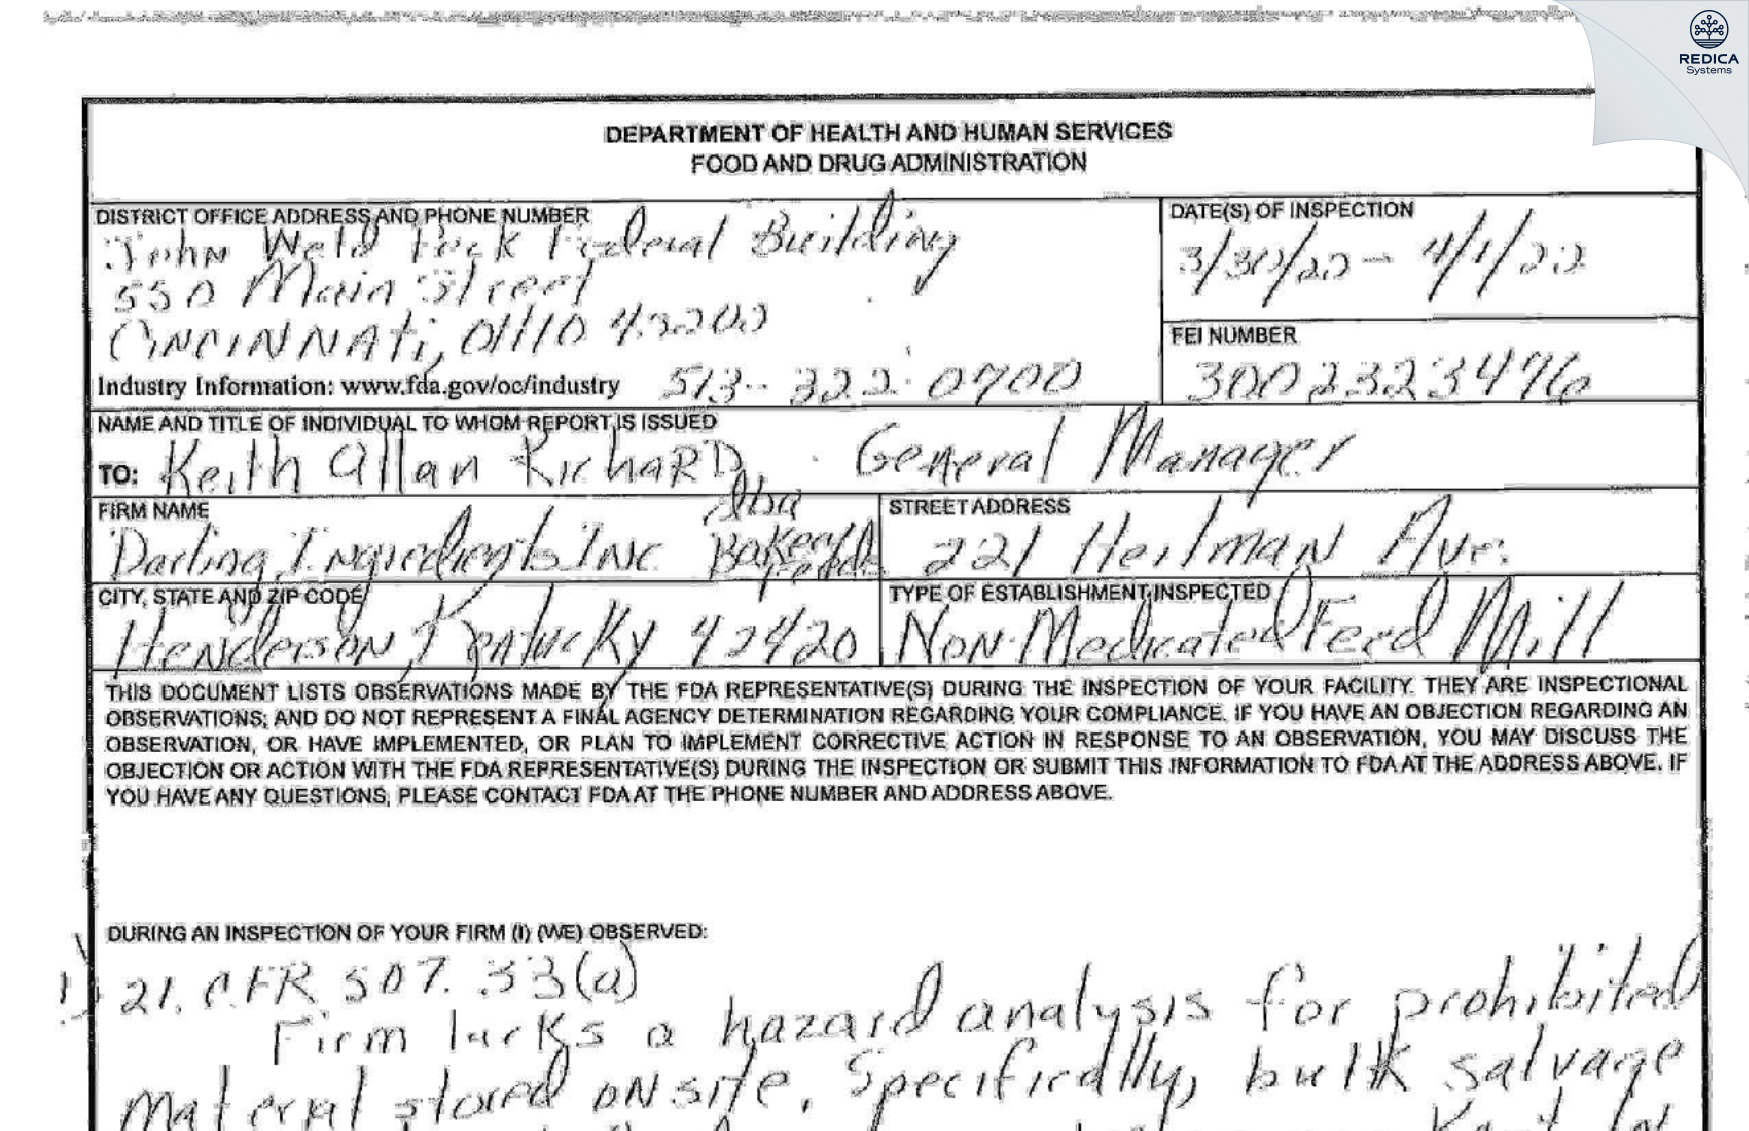 REDICA
Systems
DEPARTMENT OF HEALTH AND HUMAN SERVICES
FOOD AND DRUG ADMINISTRATION
DISTRICT OFFICE ADDRESS AND PHONE NUMBER
John Weld Peck Federal Building
550 Main Street
Cincinnati, Ohio
Industry Information: www.fda.gov/oc/industry
DATE(S) OF INSPECTION
4/1/22
FEI NUMBER
NAME AND TITLE OF INDIVIDUAL TO WHOM REPORT IS ISSUED
TO: Keith Allan RichaRD, General Manager
FIRM NAME
Darling Ingredients Inc dba
STREET ADDRESS
221 Heilman Ave.
CITY, STATE AND ZIP CODE
Henderson, Kentucky 42420
TYPE OF ESTABLISHMENT INSPECTED
Non-Medicated Feed Mill
THIS DOCUMENT LISTS OBSERVATIONS MADE BY THE FDA REPRESENTATIVE(S) DURING THE INSPECTION OF YOUR FACILITY. THEY ARE INSPECTIONAL
OBSERVATIONS; AND DO NOT REPRESENT A FINAL AGENCY DETERMINATION REGARDING YOUR COMPLIANCE. IF YOU HAVE AN OBJECTION REGARDING AN
OBSERVATION, OR HAVE IMPLEMENTED, OR PLAN TO IMPLEMENT CORRECTIVE ACTION IN RESPONSE TO AN OBSERVATION, YOU MAY DISCUSS THE
OBJECTION OR ACTION WITH THE FDA REPRESENTATIVE(S) DURING THE INSPECTION OR SUBMIT THIS INFORMATION TO FDA AT THE ADDRESS ABOVE. IF
YOU HAVE ANY QUESTIONS, PLEASE CONTACT FDA AT THE PHONE NUMBER AND ADDRESS ABOVE.
DURING AN INSPECTION OF YOUR FIRM (I) (WE) OBSERVED:
1) 21. CFR 507. 33(a)
Firm lacks a hazard analysis for prohibited
material stored onsite. Specifically, bulk salvage